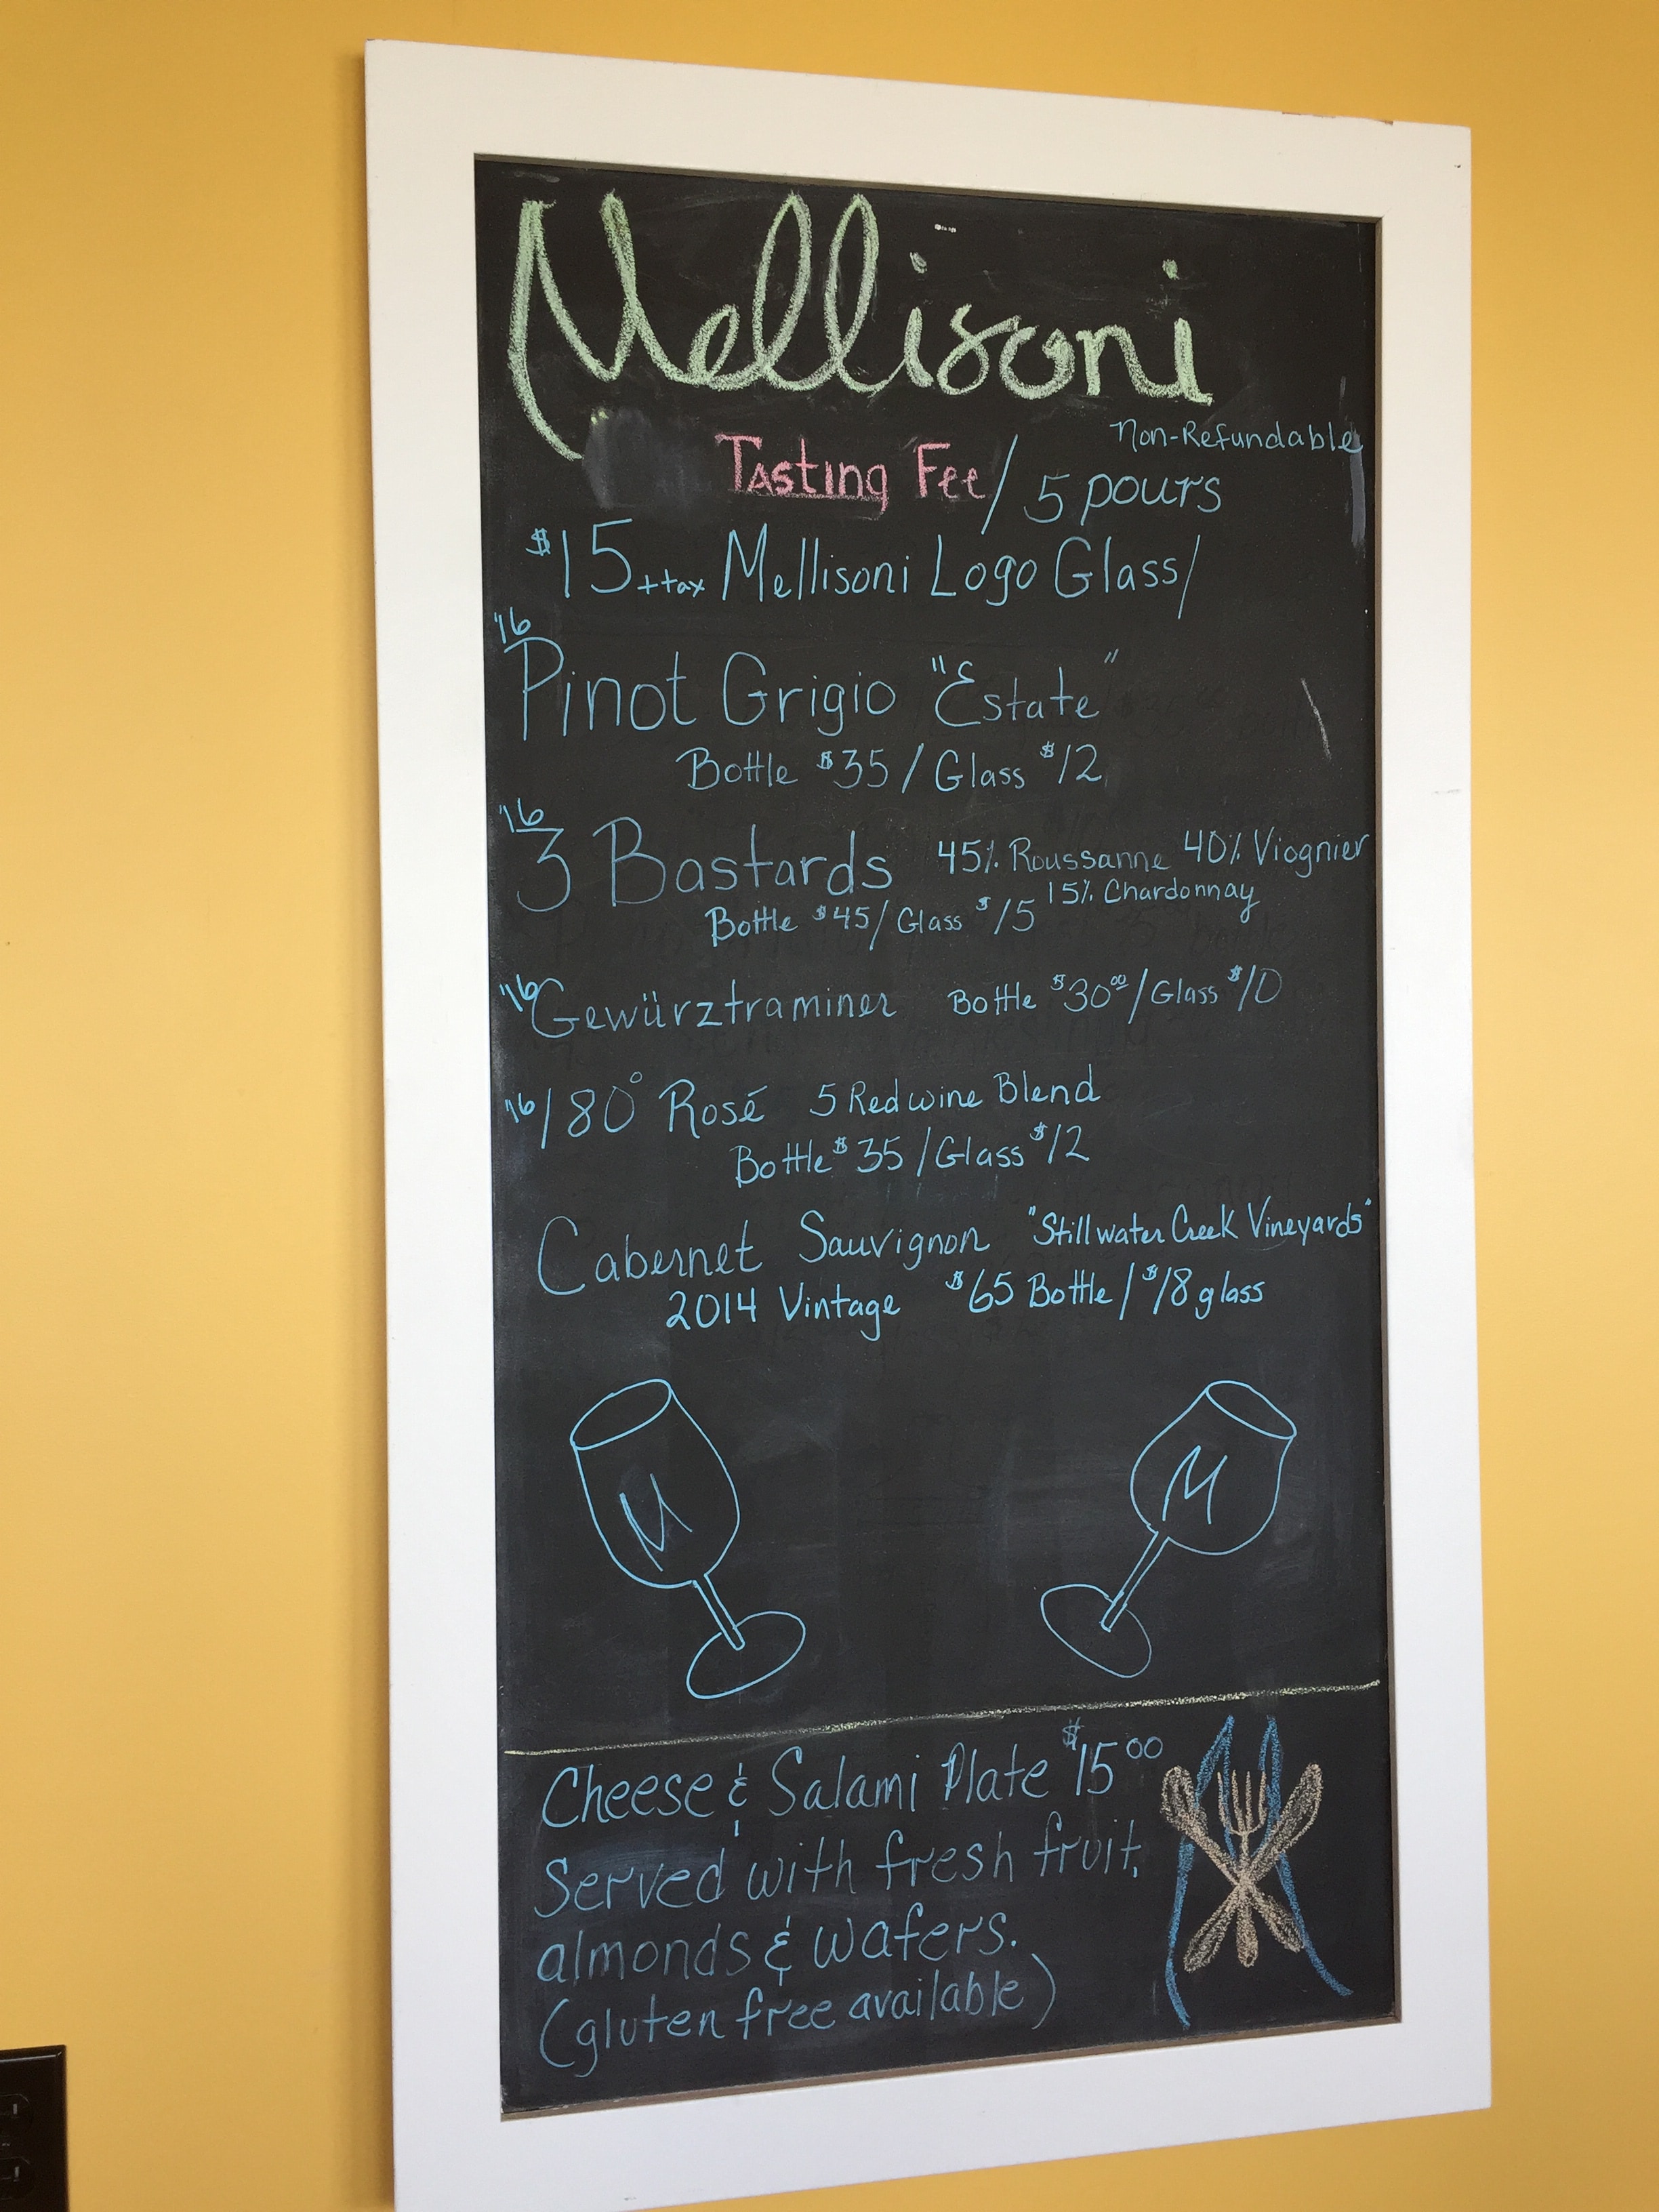 Mellisoni
Non-Refundable
Tasting Fee / 5 pours
$15 + tax Mellisoni Logo Glass/
'16
Pinot Grigio "Estate"
Bottle $35 / Glass $12
'16
3 Bastards 45% Roussanne 40% Viognier
15% Chardonnay
Bottle $45 / Glass $15
'16 Gewürztraminer Bottle $30.00 / Glass $10
'16 180° Rosé 5 Red wine Blend
Bottle $35 / Glass $12
Cabernet Sauvignon "Stillwater Creek Vineyards"
2014 Vintage $65 Bottle / $18 glass
M M
Cheese & Salami Plate $15.00
Served with fresh fruit,
almonds & wafers.
(gluten free available)
M